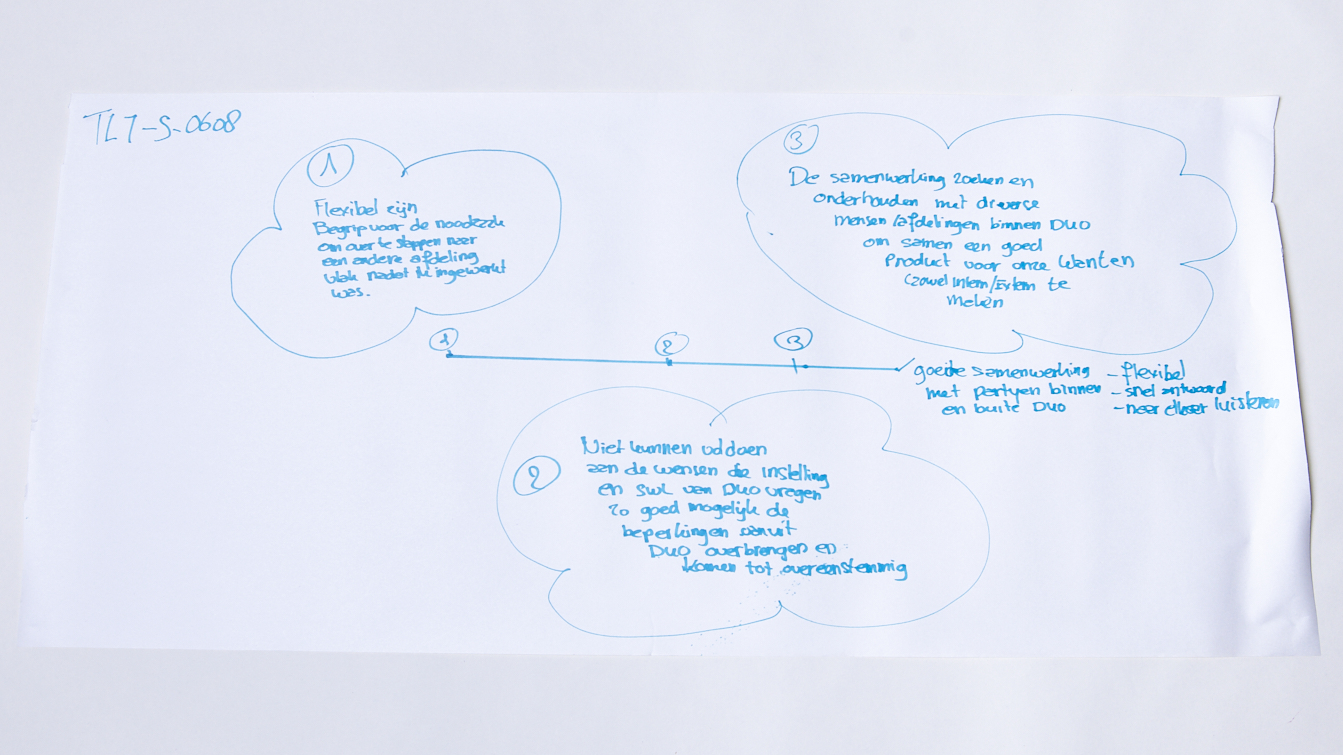 TL7-S-0608
1
Flexibel zijn
Begrip voor de noodzaak
om over te stappen naar
een andere afdeling
vlak nadat ik ingewerkt
was.
3
De samenwerking zoeken en
onderhouden met diverse
mensen/afdelingen binnen DUO
om samen een goed
Product voor onze klanten
(zowel Intern/Extern te
maken
1 2 3
goede samenwerking - flexibel
met partyen binnen - snel antwoord
en buite DUO - naar elkaar luisteren
2
Niet kunnen voldoen
aan de wensen die instelling
en SWL van DUO vragen
Zo goed mogelijk de
beperkingen vanuit
DUO overbrengen en
komen tot overeenstemmig